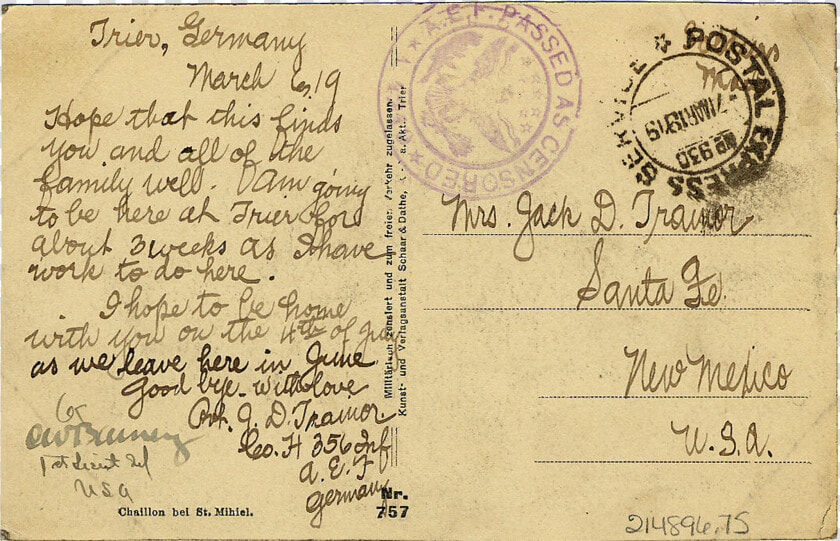 Trier, Germany
March 6, 19
Hope that this finds
you and all of the
family well. I Am going
to be here at Trier for
about 3 weeks as I have
work to do here.
I hope to be home
with you on the 4th of July
as we leave here in June
Good bye with love
Pvt. J. D. Trainor
Co. H 356 Inf
A. E. F
Germany
1st Lieut Inf
USA
Chaillon bei St. Mihiel.
Nr.
757
Militärisch zensiert und zum freien Verkehr zugelassen
Kunst- und Verlagsanstalt Schaar & Dathe, a. Akt., Trier
A.E.F. PASSED AS CENSORED
POSTAL EXPRESS SERVICE
7 MAR 1919
930
Mrs. Jack D. Trainor
Santa Fe.
New Mexico
U.S.A.
214896.75